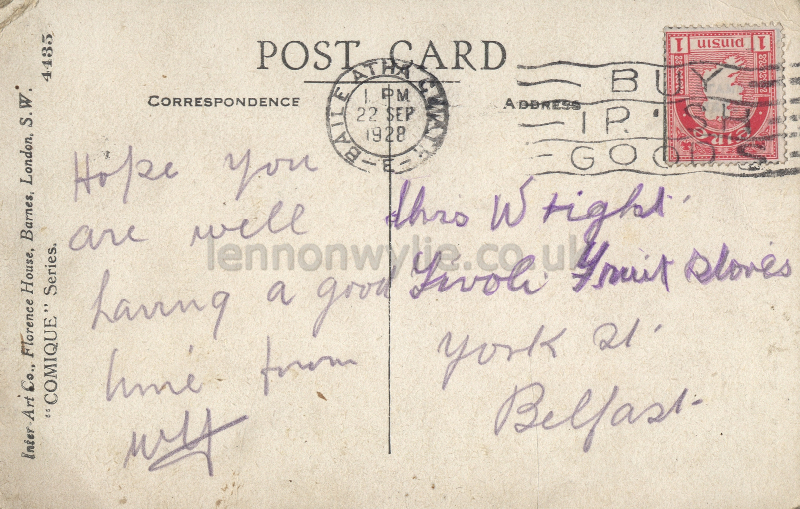 POST CARD
CORRESPONDENCE
ADDRESS
BAILE ATHA CLIATH
1 PM
22 SEP
1928
BUY
IRISH
GOODS
1 pinsin 1
éire
Hope you
are well
having a good
time from
Mrs Wright
Tivoli Fruit Stores
York St.
Belfast
Inter-Art Co., Florence House, Barnes, London, S.W.
"COMIQUE" Series.
4435
lennonwylie.co.uk